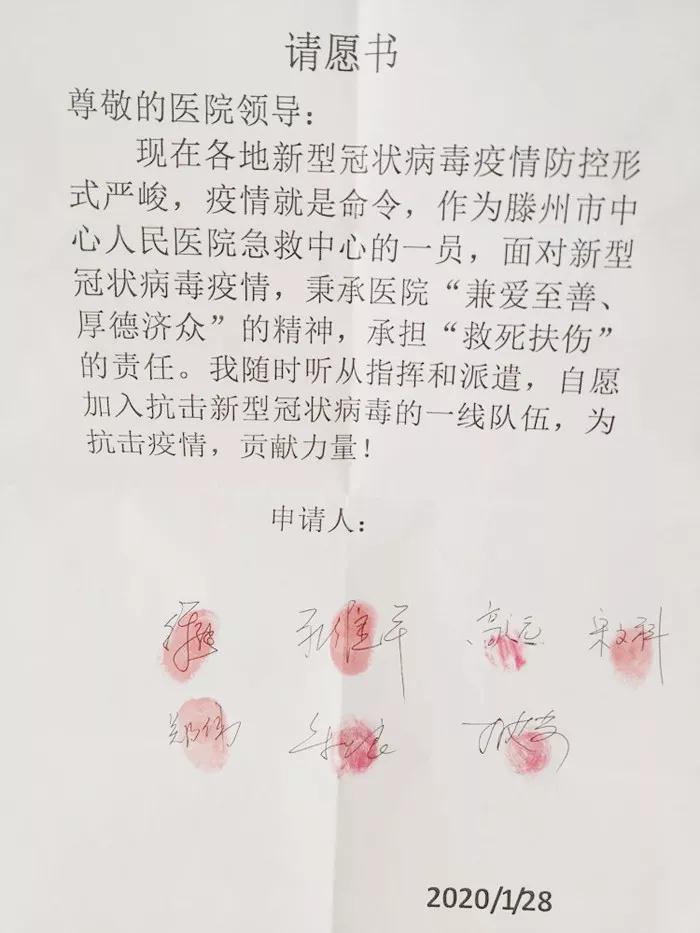 请愿书
尊敬的医院领导：
现在各地新型冠状病毒疫情防控形
式严峻，疫情就是命令，作为滕州市中
心人民医院急救中心的一员，面对新型
冠状病毒疫情，秉承医院“兼爱至善、
厚德济众”的精神，承担“救死扶伤”
的责任。我随时听从指挥和派遣，自愿
加入抗击新型冠状病毒的一线队伍，为
抗击疫情，贡献力量！
申请人：
高远 宋文科
郑伟
2020/1/28